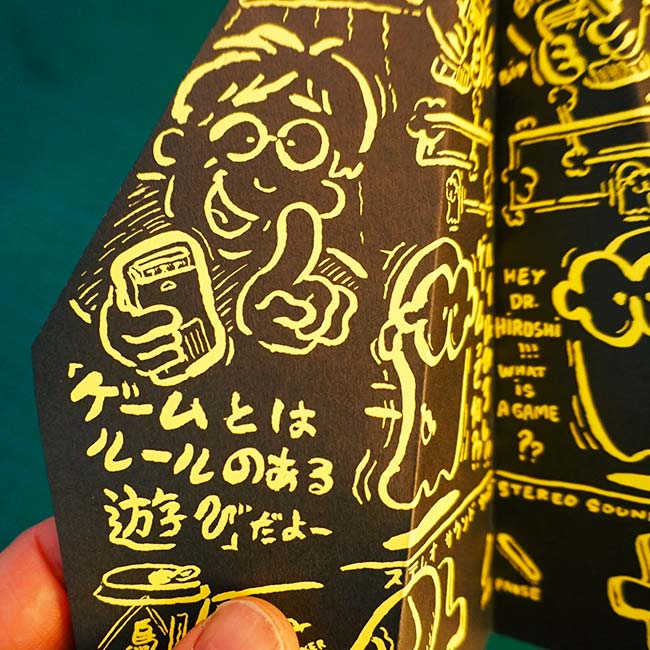 「ゲームとは
ルールのある
遊び」だよー
ステレオ サウンド
烏
HEY
DR.
HIROSHI
!!!
WHAT
IS
A GAME
??
STEREO SOUN
PAUSE